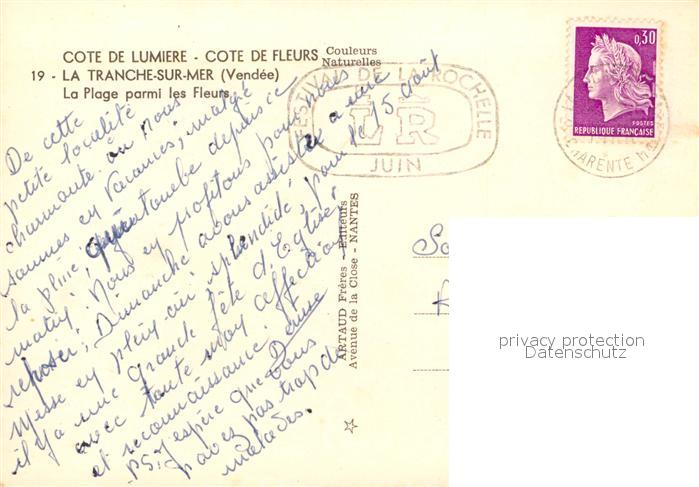 COTE DE LUMIERE - COTE DE FLEURS Couleurs Naturelles
19 - LA TRANCHE-SUR-MER (Vendée)
La Plage parmi les Fleurs
De cette
petite localité
charmante où nous
sommes en vacances, malgré
la pluie qui tombe depuis ce
matin. Nous en profitons pour nous
reposer. Dimanche avons assisté à une
Messe en plein air splendide, pour le 15 août
il y a une grande fête d'Eglise.
avec toute mon affection
et reconnaissance. Denise
PS. J'espère que vous
n'avez pas trop de
malades.
FESTIVAL DE LA ROCHELLE
LR
JUIN
0,30
POSTES
REPUBLIQUE FRANÇAISE
CHARENTE Mme
ARTAUD Frères - Editeurs
Avenue de la Close - NANTES
privacy protection
Datenschutz